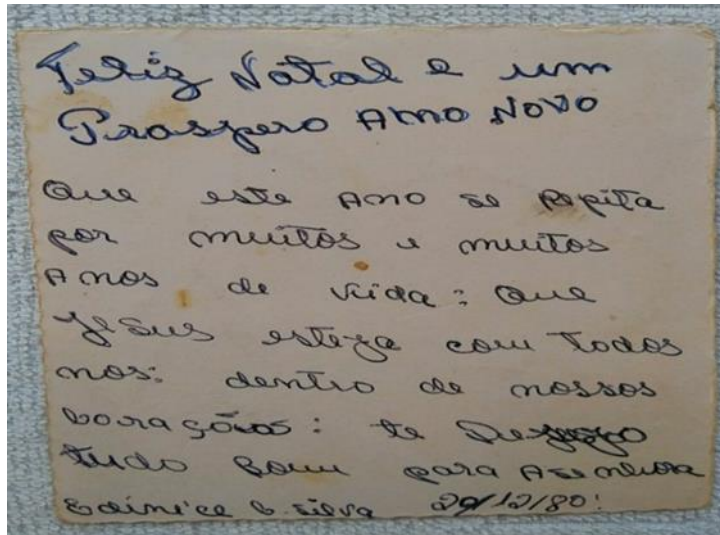 Feliz Natal e um
Prospero Ano Novo
Que este Ano se Repita
por muitos e muitos
Anos de vida: Que
Jesus esteja com todos
nos: dentro de nossos
corações: te Desejo
tudo bom para A senhora
Edinice B. Silva 29/12/80!